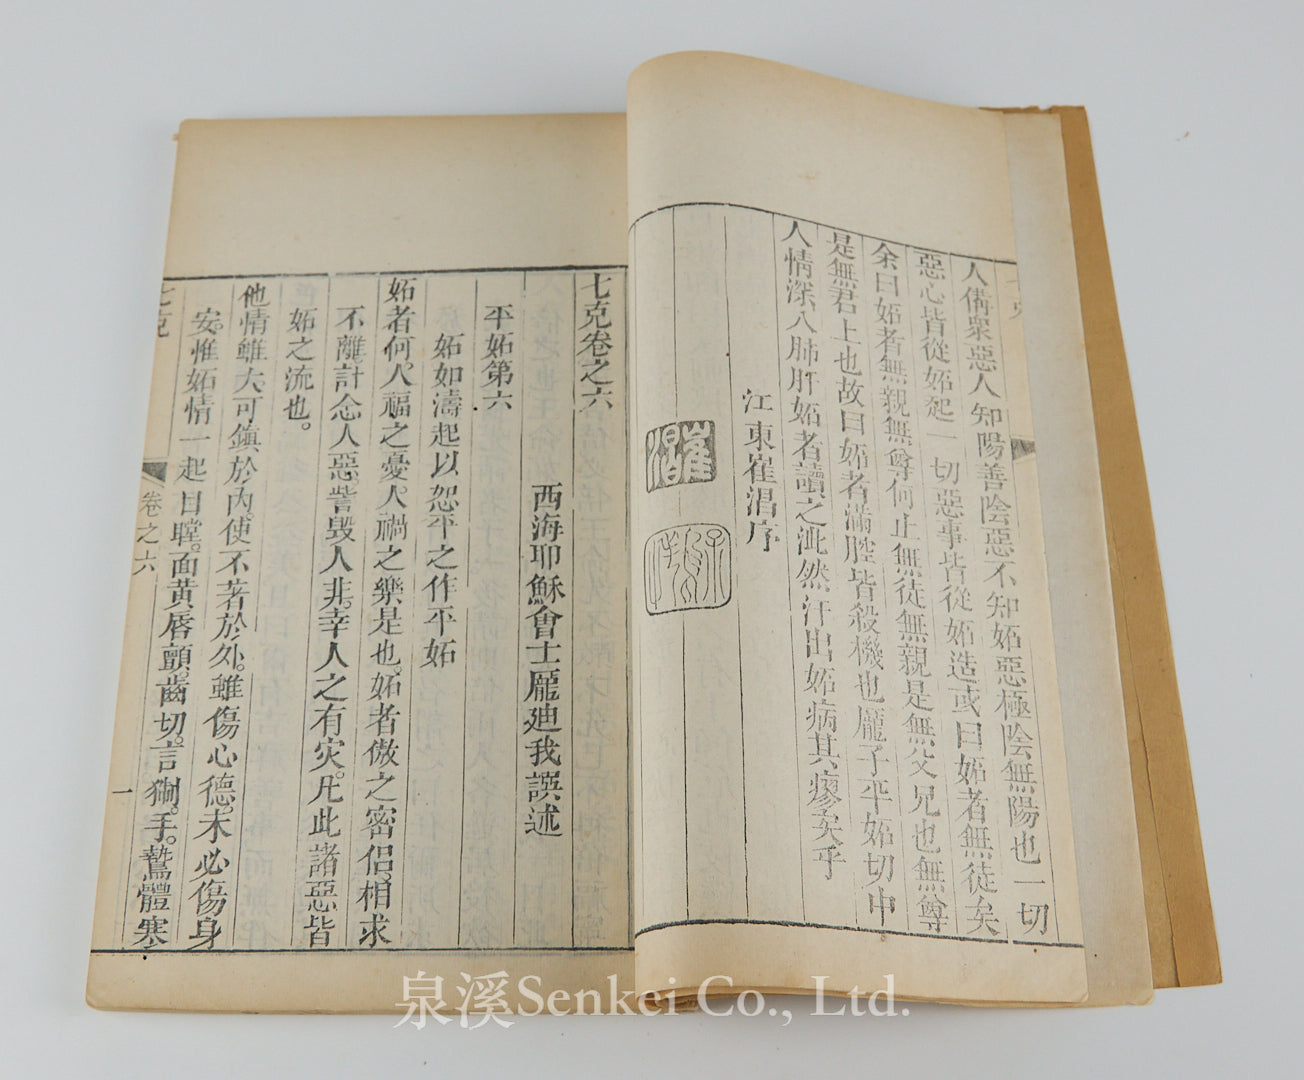 人備衆惡人知陽善陰惡不知妬惡極陰無陽也一切
惡心皆從妬起一切惡事皆從妬造或曰妬者無徒矣
余曰妬者無親無尊何止無徒無親是無父兄也無尊
是無君上也故曰妬者滿腔皆殺機也龐子平妬切中
人情深入肺肝妬者讀之泚然汗出妬病其瘳矣乎
江東崔淐序
七克卷之六
西海耶穌會士龐廸我譔述
平妬第六
妬如濤起以恕平之作平妬
妬者何人福之憂人禍之樂是也。妬者傲之密侶相求
不離計念人惡訾毀人非。幸人之有灾。凡此諸惡皆
妬之流也。
他情雖大可鎮於內。使不著於外。雖傷心德。未必傷身
安。惟妬情一起目瞠。面黃唇顫。齒切。言猘。手。鷙體寒
七克
卷之六
一
泉溪Senkei Co., Ltd.